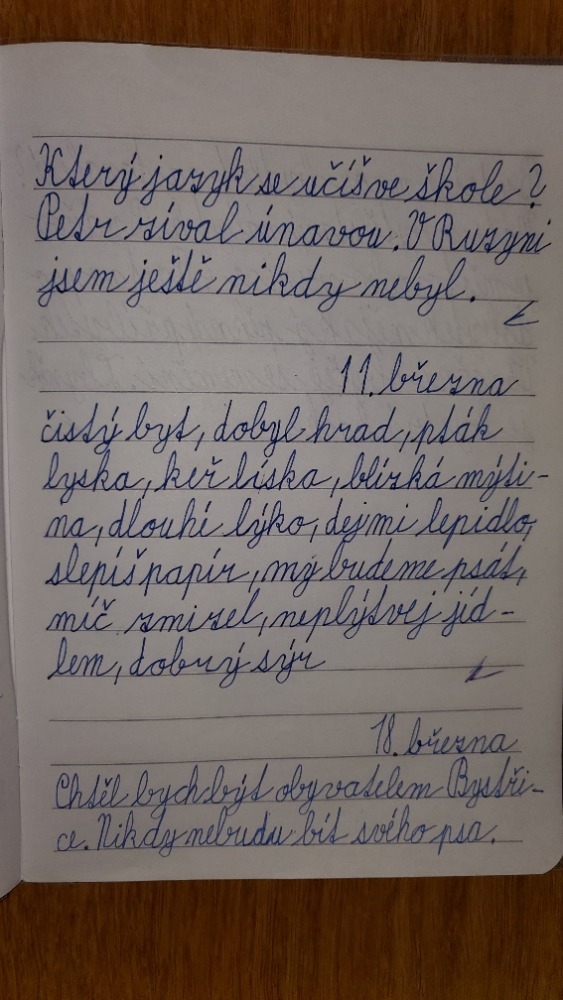 Který jazyk se učíš ve škole?
Petr zíval únavou. V Ruzyni
jsem ještě nikdy nebyl.
11. března
čistý byt, dobyl hrad, pták
lyska, keř líska, blízká mýti-
na, dlouhí lýko, dej mi lepidlo,
slepíš papír, my budeme psát,
míč zmizel, neplýtvej jíd-
lem, dobrý sýr
18. března
Chtěl bych být obyvatelem Bystři-
ce. Nikdy nebudu bít svého psa.